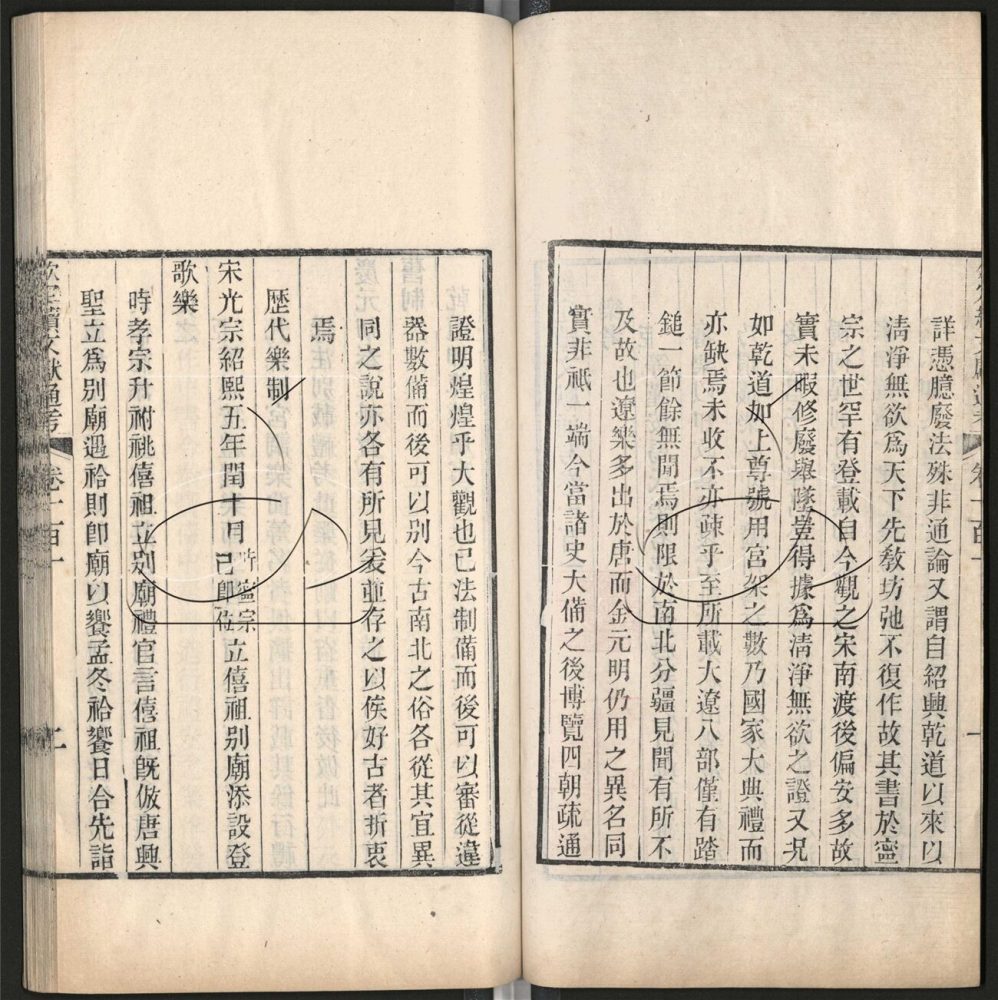 詳憑臆廢法殊非通論又謂自紹興乾道以來以
淸淨無欲爲天下先敎坊弛不復作故其書於寧
宗之世罕有登載自今觀之宋南渡後偏安多故
實未暇修廢舉墜豈得據爲淸淨無欲之證又况
如乾道加上尊號用宮架之數乃國家大典禮而
亦缺焉未收不亦疎乎至所載大遼八部僅有踏
鎚一節餘無聞焉則限於南北分疆見聞有所不
及故也遼樂多出於唐而金元明仍用之異名同
實非祇一端今當諸史大備之後博覽四朝疏通
證明煌煌乎大觀也已法制備而後可以審從違
器數備而後可以別今古南北之俗各從其宜異
同之說亦各有所見爰並存之以俟好古者折衷
焉
歴代樂制
宋光宗紹熙五年閏十月時寧宗已卽位立僖祖別廟添設登
歌樂
時孝宗升祔祧僖祖立別廟禮官言僖祖旣倣唐興
聖立爲別廟遇祫則卽廟以饗孟冬祫饗日合先詣
欽定續文獻通考
卷一百一
二